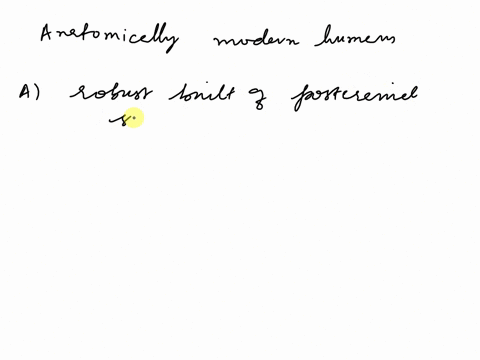 Anatomically modern humans
A) robust built of postcranial
s